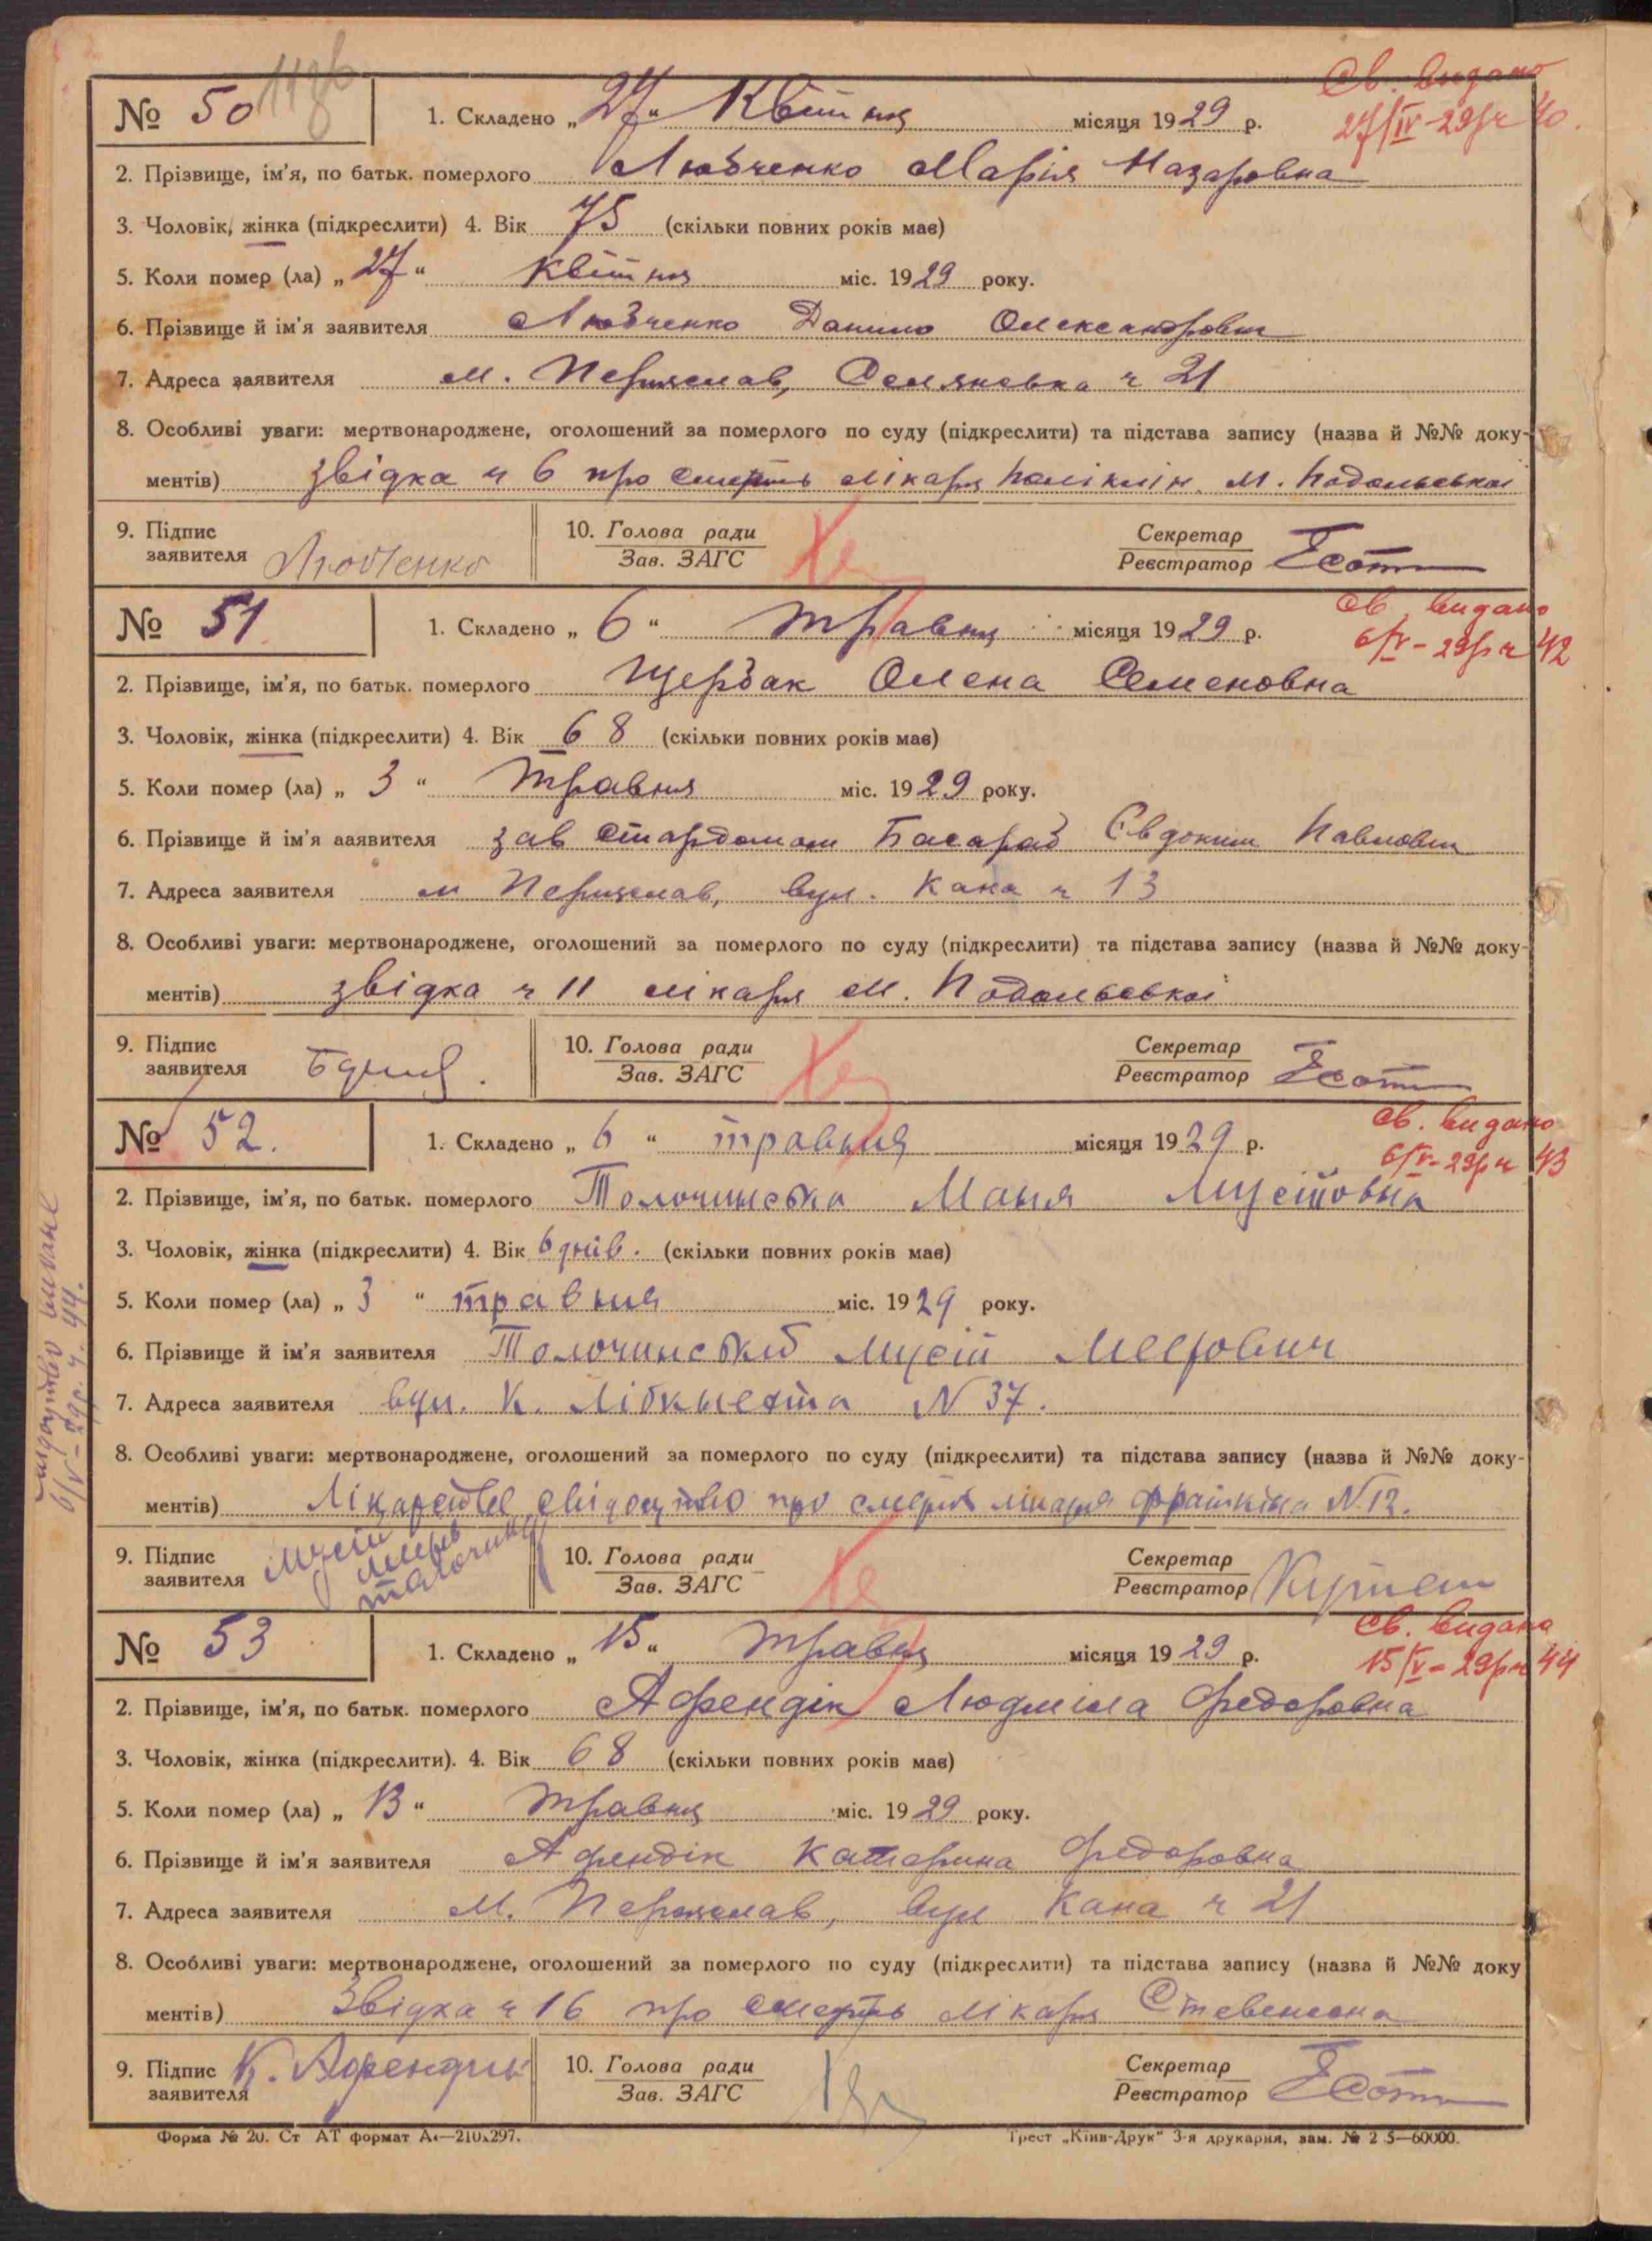 № 50
1. Складено „27“ Квітня місяця 1929 р.
Св. видано
27/IV-29р ч 40
2. Прізвище, ім'я, по батьк. померлого Любченко Марія Назаровна
3. Чоловік, жінка (підкреслити) 4. Вік 75 (скільки повних років має)
5. Коли помер (ла) „27“ Квітня міс. 1929 року.
6. Прізвище й ім'я заявителя Любченко Данило Олександрович
7. Адреса заявителя м. Переяслав, ч 21
8. Особливі уваги: мертвонароджене, оголошений за померлого по суду (підкреслити) та підстава запису (назва й №№ доку-
ментів) звідка ч 6 про смерть лікаря поліклін. М. Подольської
9. Підпис заявителя Любченко
10. Голова ради
Зав. ЗАГС
Секретар
Реєстратор
№ 51
1. Складено „6“ травня місяця 1929 р.
Св. видано
6/V-29р ч 42
2. Прізвище, ім'я, по батьк. померлого Щербак Олена Семеновна
3. Чоловік, жінка (підкреслити) 4. Вік 68 (скільки повних років має)
5. Коли помер (ла) „3“ Травня міс. 1929 року.
6. Прізвище й ім'я заявителя зав Стардомом Басараб Євдоким Павлович
7. Адреса заявителя м Переяслав, вул. Кана ч 13
8. Особливі уваги: мертвонароджене, оголошений за померлого по суду (підкреслити) та підстава запису (назва й №№ доку-
ментів) звідка ч 11 лікаря М. Подольської
9. Підпис заявителя
10. Голова ради
Зав. ЗАГС
Секретар
Реєстратор
№ 52.
1. Складено „6“ травня місяця 1929 р.
Св. видано
6/V-29р ч 43
2. Прізвище, ім'я, по батьк. померлого Толочинська Маня
3. Чоловік, жінка (підкреслити) 4. Вік 6 днів. (скільки повних років має)
5. Коли помер (ла) „3“ травня міс. 1929 року.
6. Прізвище й ім'я заявителя Толочинський Мусій Меєрович
7. Адреса заявителя вул. К. Лібкнехта N 37.
8. Особливі уваги: мертвонароджене, оголошений за померлого по суду (підкреслити) та підстава запису (назва й №№ доку-
ментів) свідоцтво про смерть лікаря N 12.
9. Підпис заявителя
10. Голова ради
Зав. ЗАГС
Секретар
Реєстратор
№ 53
1. Складено „15“ Травня місяця 1929 р.
Св. видано
15/V-29р ч 44
2. Прізвище, ім'я, по батьк. померлого Афендік Людміла Федоровна
3. Чоловік, жінка (підкреслити). 4. Вік 68 (скільки повних років має)
5. Коли помер (ла) „13“ Травня міс. 1929 року.
6. Прізвище й ім'я заявителя Афендік Катерина Федоровна
7. Адреса заявителя м. Переяслав, вул Кана ч 21
8. Особливі уваги: мертвонароджене, оголошений за померлого по суду (підкреслити) та підстава запису (назва й №№ доку
ментів) Звідка ч 16 про смерть лікаря
9. Підпис заявителя К. Афендик
10. Голова ради
Зав. ЗАГС
Секретар
Реєстратор
Форма № 20. Ст АТ формат А4—210х297.
Трест „Київ-Друк“ 3-я друкарня, зам. №